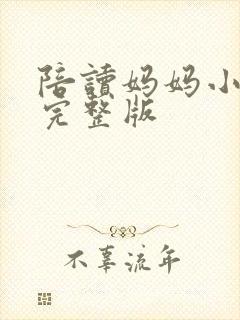 陪讀妈妈小
完整版
不辜流年